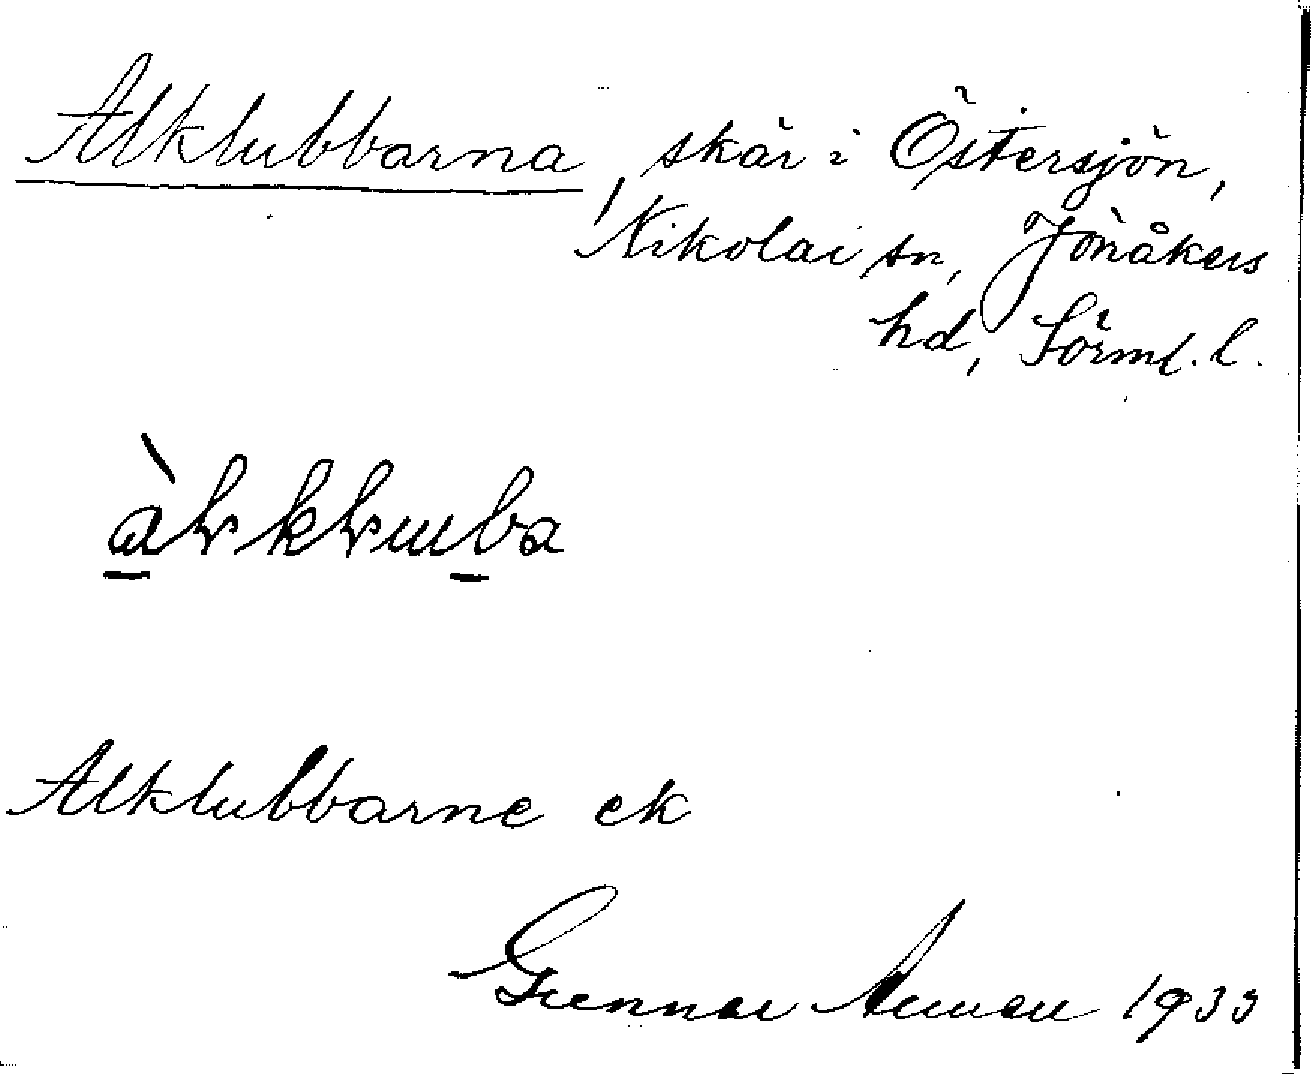 Alklubbarna, skär i Östersjön,
Nikolai sn, Jönåkers
hd, Sörml. l.
àlkluba
Alklubbarne ek
Gunnar 1933